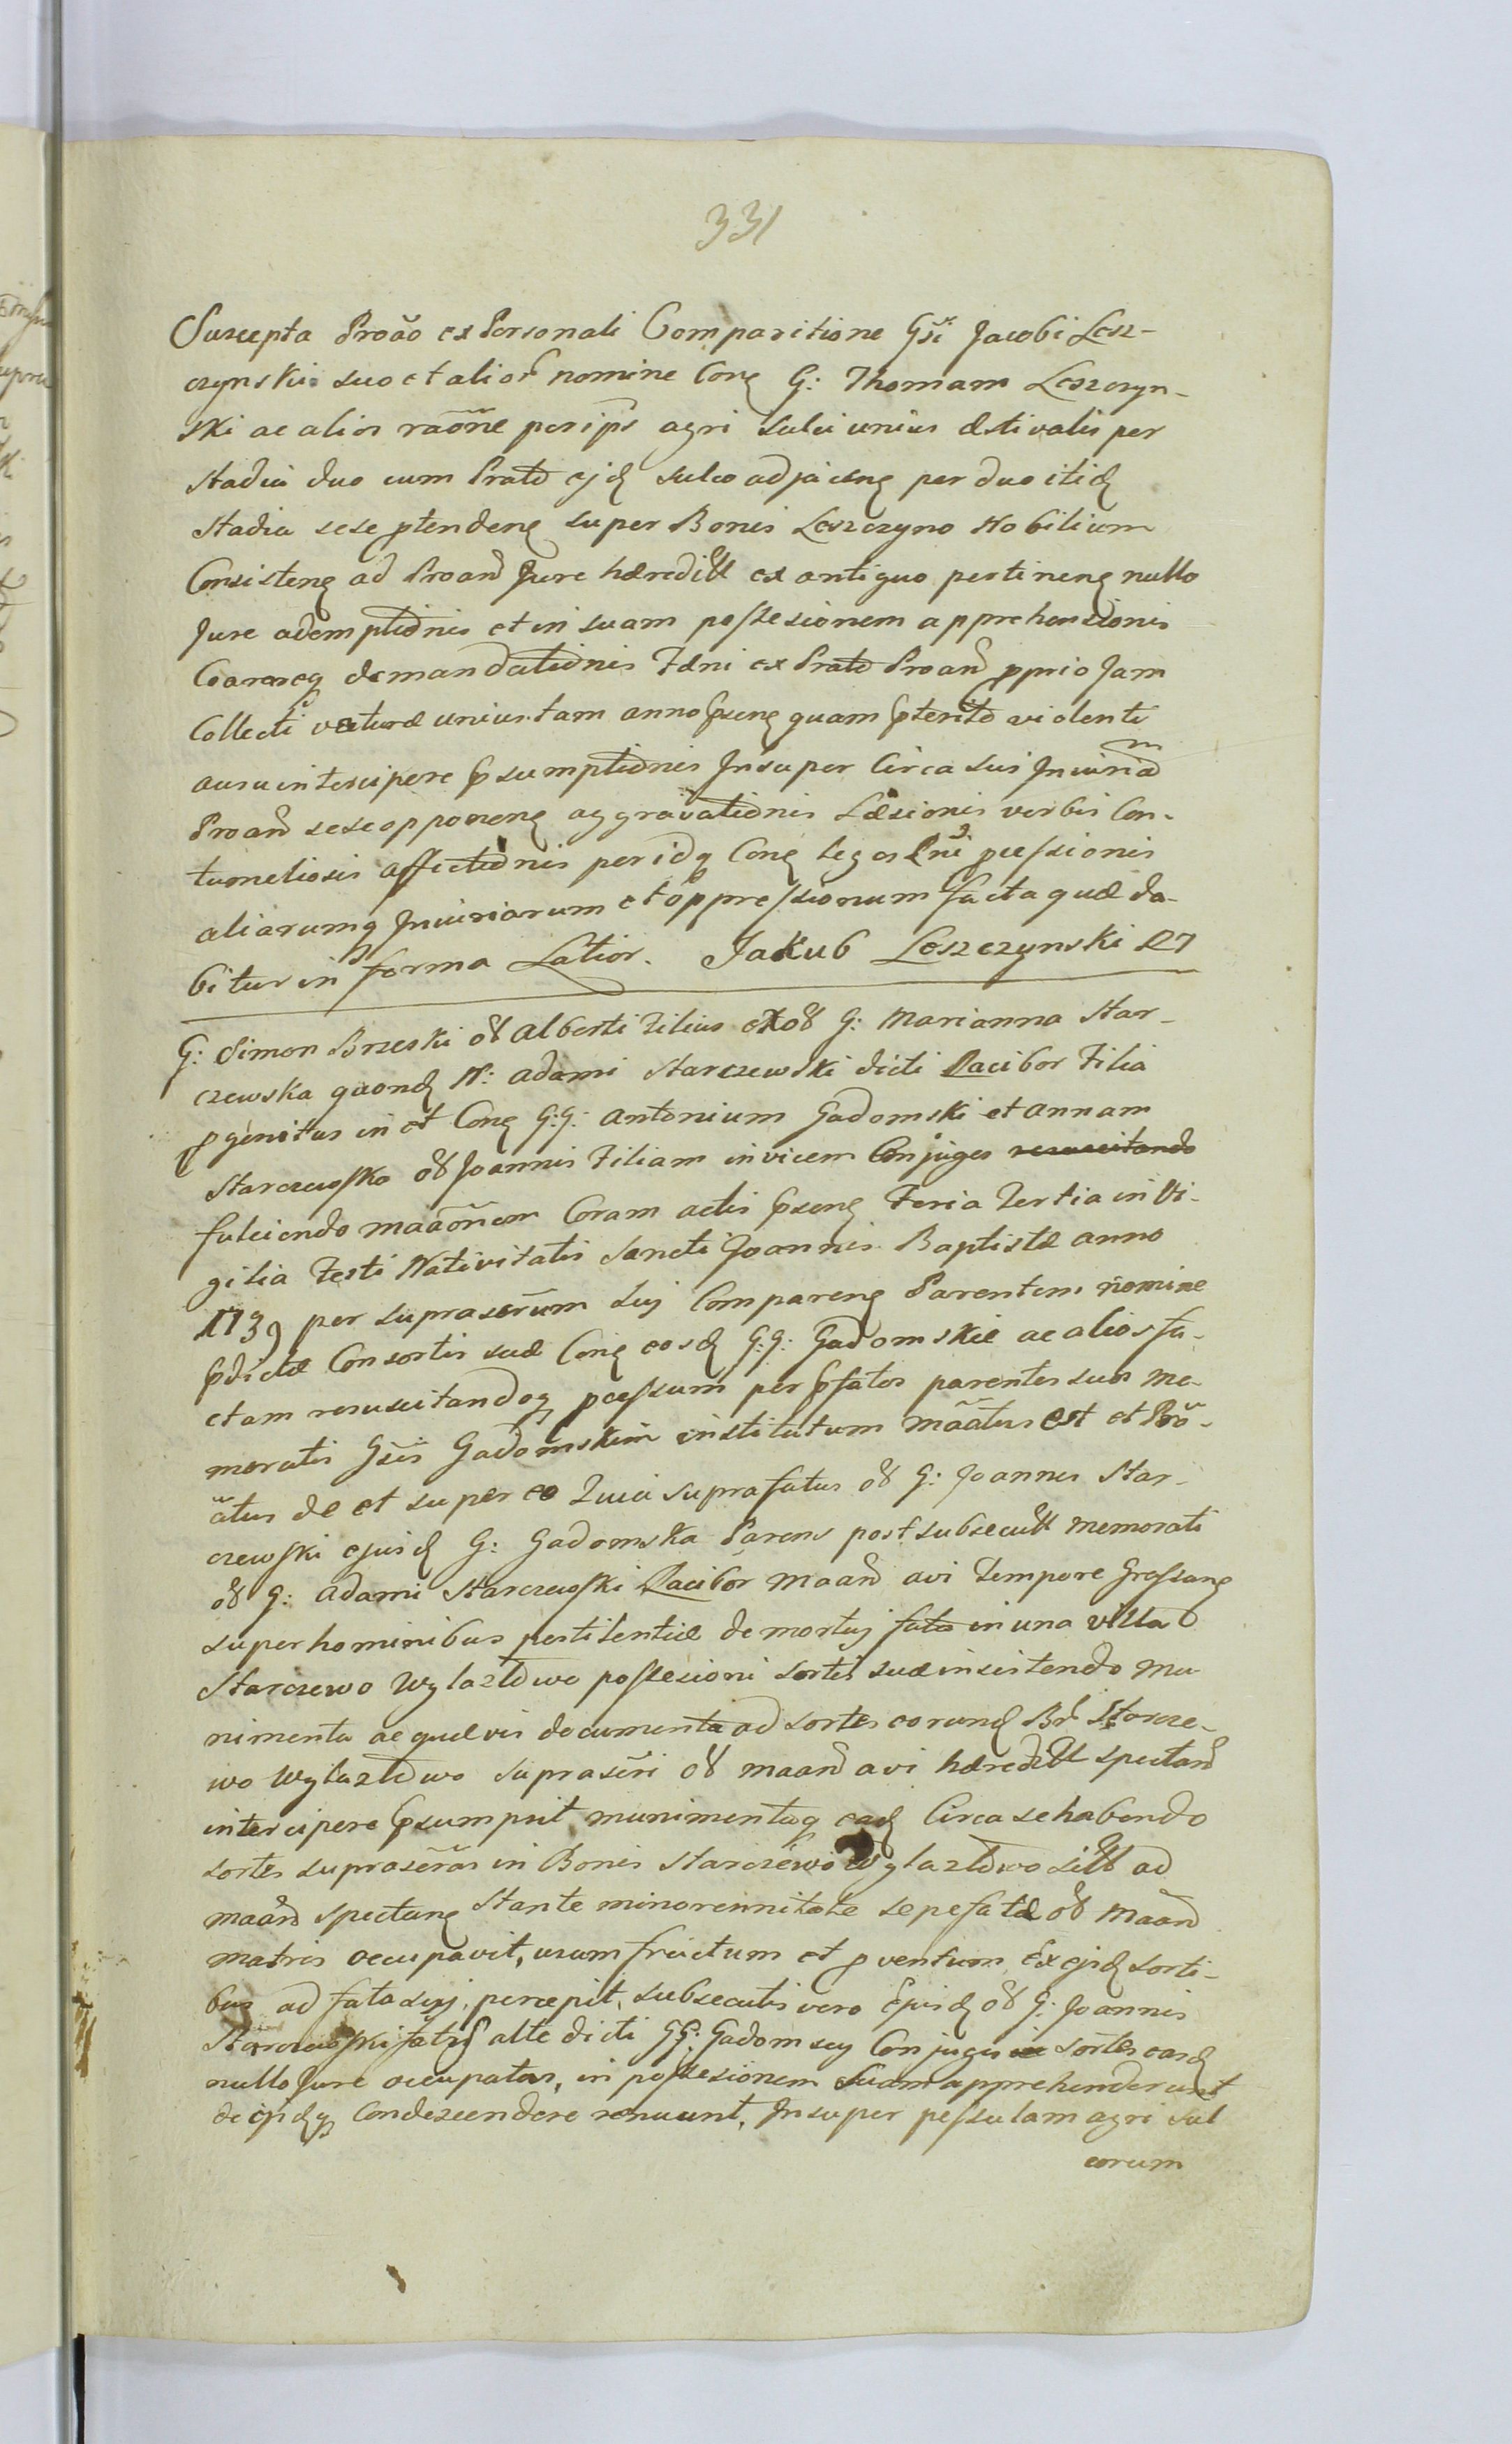 331
Suscepta Proāo ex Personali Comparitione Gsi Jacobi Lesz-
czynski suo et alior nomine Conq G: Thomam Leszczyn-
ski ac alios raõne per ips agri sulci unius æstivalis per
stadia duo cum Prato ejd sulco adjacenq per duo itid
stadia sese ptendenq super Bonis Leszczyno Nobilium
Consistenq ad Proand Jure hæredill ex antiquo pertinenq nullo
Jure ademptionis et in suam possesionem apprehensionis
demandationis Fæni ex Prato Proand pprio Jam
Collecti vecturæ unius tam anno psenq quam pterito violenti
ausu intercipere psumptionis Insuper Circa sui Injuriam
Proand sese opponenq aggravationis Læsionis verbis Con-
tumeliosis affectionis per idq Conq leges Rni pcessionis
aliarumq Injuriarum et oppressionum facta quæ da-
bitur in forma Latior. Jakub Leszczynski
G: Simon Brzeski ol Alberti Filius ex ol G: Marianna Star-
czewska quond N: Adami Starczewski dicti Racibor Filia
pgenitus in et Conq G:G: Antonium Gadomski et Annam
Starczewska ol Joannis Filiam invicem Conjuges resuscitando
fulciendo maāōnem Coram actis psenq Feria Tertia in Vi-
gilia Festi Nativitatis Sancti Joannis Baptistæ anno
1739 per suprascrum sui Comparenq Parentem nomine
pdictæ Consortis suæ Conq eosd G:G: Gadomskie ac alios fa-
ctam resuscitandoq pcessum per pfatos parentes suos me-
moratis Gsis Gadomskim institutum māatus est et Proo-
atus de et super eo Quia suprafatus ol G: Joannes Star-
czewski ejusd G: Gadomska Parens post subsecutt memorati
ol G: Adami Starczewski Racibor maand avi tempore grassanq
super hominibus pestilentiæ demortuj fata in una villa
Starczewo Wylaztowo possesioni sortis suæ insistendo mu-
nimenta ac quævis documenta ad sortes eorund Br Starcze-
wo Wylaztowo suprascri ol maand avi hæredill spectand
intercipere psumpsit munimentaq ead Circa se habendo
sortes suprascras in Bonis Starczewo Wylaztowo sitt ad
maand spectanq Stante minorennitate sepefatæ ol maand
matris occupavit, usumfructum et pventum Ex ejsd sorti-
bus ad fata suj, percepit, subsecutis vero Ejusd ol G: Joannis
Starczewski fatis alte dicti GG: Gadomscy Conjuges sortes easd
nullo Jure occupatas, in possesionem suam apprehenderunt
de ejsdq Condescendere renuunt, Insuper pessulam agri sul
corum